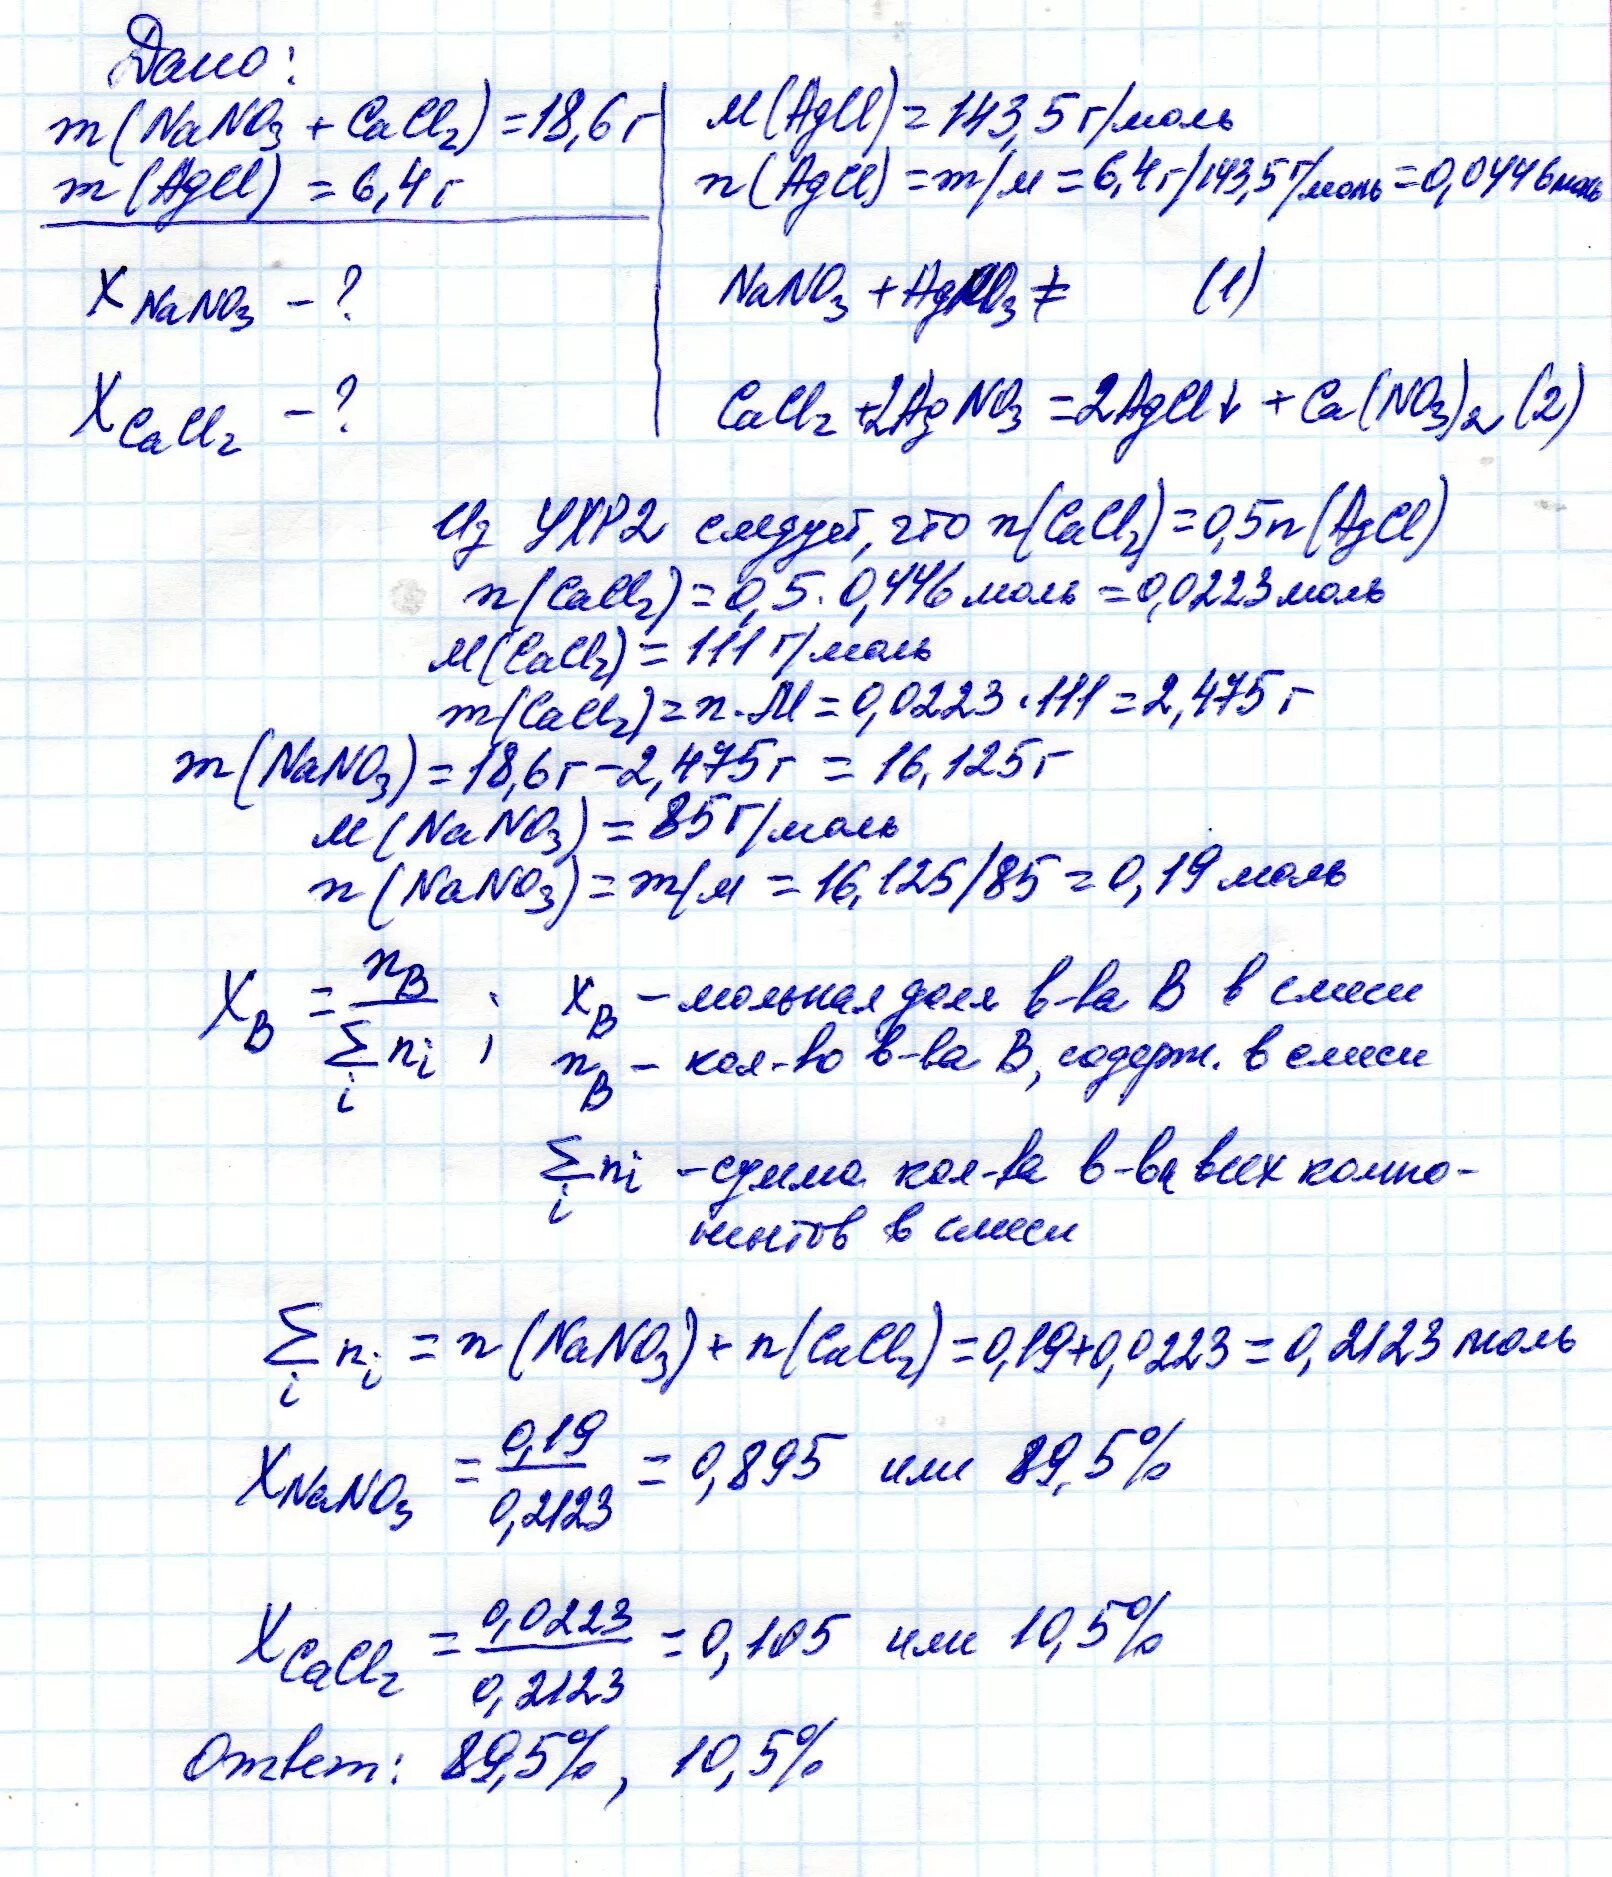 Дано:
m(NaNO₃ + CaCl₂) = 18,6 г
m(AgCl) = 6,4 г
X NaNO₃ - ?
X CaCl₂ - ?
M(AgCl) = 143,5 г/моль
n(AgCl) = m/M = 6,4 г/143,5 г/моль = 0,0446 моль
NaNO₃ + AgNO₃ ≠ (1)
CaCl₂ + 2AgNO₃ = 2AgCl↓ + Ca(NO₃)₂ (2)
Из УХР2 следует, что n(CaCl₂) = 0,5n(AgCl)
n(CaCl₂) = 0,5 · 0,446 моль = 0,0223 моль
M(CaCl₂) = 111 г/моль
m(CaCl₂) = n · M = 0,0223 · 111 = 2,475 г
m(NaNO₃) = 18,6 г - 2,475 г = 16,125 г
M(NaNO₃) = 85 г/моль
n(NaNO₃) = m/M = 16,125/85 = 0,19 моль
X_B = n_B / Σ_i n_i ; X_B - мольная доля в-ва B в смеси
n_B - кол-во в-ва B, содерж. в смеси
Σ_i n_i - сумма кол-ва в-ва всех компо-
нентов в смеси
Σ_i n_i = n(NaNO₃) + n(CaCl₂) = 0,19+0,0223 = 0,2123 моль
X NaNO₃ = 0,19 / 0,2123 = 0,895 или 89,5%
X CaCl₂ = 0,0223 / 0,2123 = 0,105 или 10,5%
Ответ: 89,5%, 10,5%